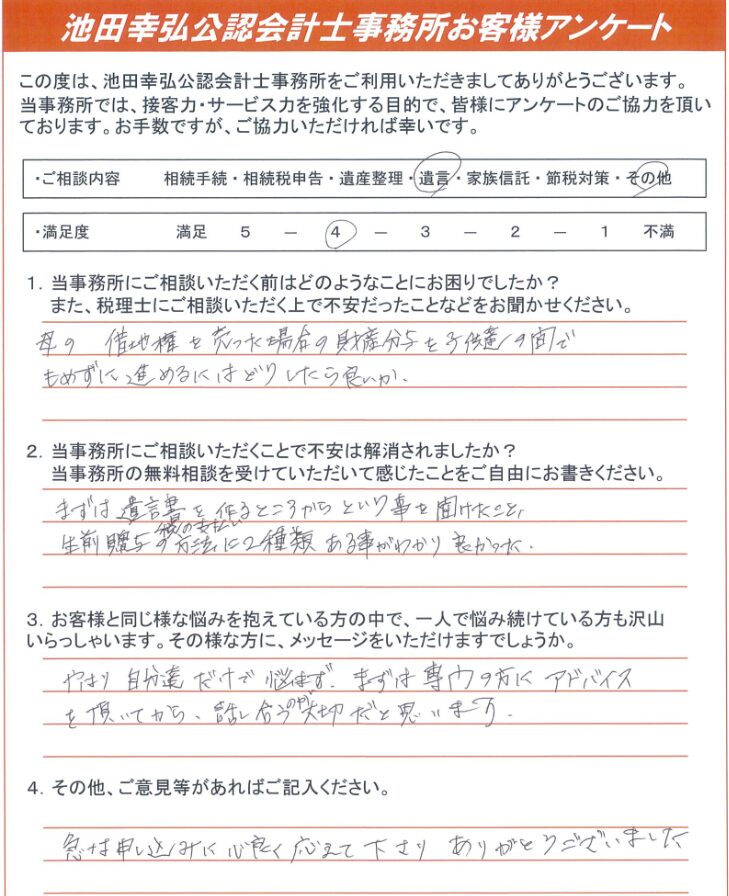 池田幸弘公認会計士事務所お客様アンケート
この度は、池田幸弘公認会計士事務所をご利用いただきましてありがとうございます。
当事務所では、接客力・サービス力を強化する目的で、皆様にアンケートのご協力を頂い
ております。お手数ですが、ご協力いただければ幸いです。
・ご相談内容 相続手続・相続税申告・遺産整理・遺言・家族信託・節税対策・その他
・満足度 満足 5 － 4 － 3 － 2 － 1 不満
1. 当事務所にご相談いただく前はどのようなことにお困りでしたか？
また、税理士にご相談いただく上で不安だったことなどをお聞かせください。
母の 借地権を売った場合の財産分与を子供達の間で
もめずに進めるにはどうしたら良いか.
2. 当事務所にご相談いただくことで不安は解消されましたか？
当事務所の無料相談を受けていただいて感じたことをご自由にお書きください。
まずは遺言書を作るところからという事を聞けたこと、
生前贈与の税の支払い方法に2種類ある事がわかり良かった.
3. お客様と同じ様な悩みを抱えている方の中で、一人で悩み続けている方も沢山
いらっしゃいます。その様な方に、メッセージをいただけますでしょうか。
やはり自分達だけで悩まず. まずは専門の方にアドバイス
を頂いてから、話し合うのが大切だと思います.
4. その他、ご意見等があればご記入ください。
急な申し込みに心良く応えて下さり ありがとうございました